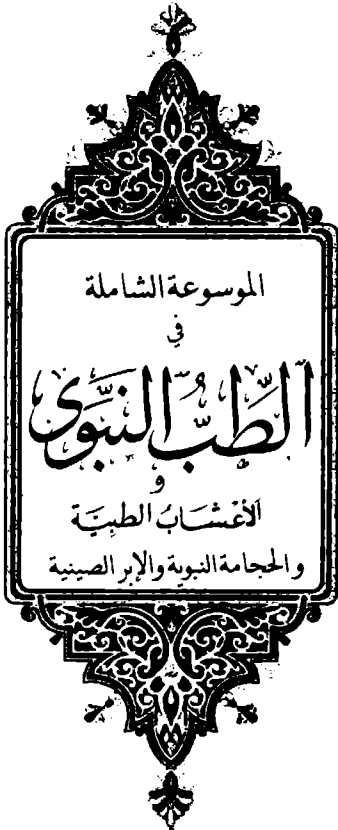 الموسوعة الشاملة
في
الطِّبُّ النَّبَوَى
و
الأعْشَابُ الطبِيَّة
والحجامة النبوية والإبر الصينية